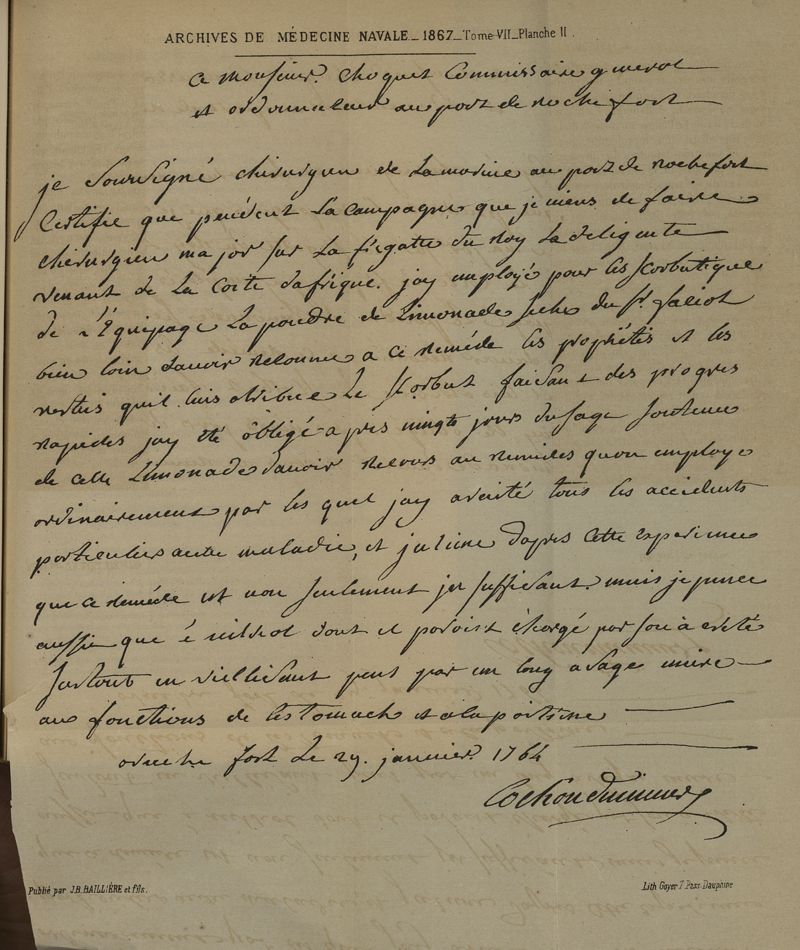 ARCHIVES DE MÉDECINE NAVALE_1867_Tome VII_Planche II.
a Monsieur. Choquet Commissaire general
et ordonnateur au port de rochefort
je Soussigné chirurgien de La marine au port de rochefort
Certifie que pendent La campagne que je viens de faire
chirurgien major sur La frégatte du Roy La deligente
venant de La Coste dafrique. jay employé pour les Scorbutique
de L'Equipage La poudre de Limonade seche du Sr. faciot
bien loin davoir reconnu a ce reméde les propriétés et les
vertus quil luis atribue Le Scorbut faisant des progres
rapides jay été obligé apres vingt jours dusage soutenu
de cette Limonade davoir recours au remedes quon employe
ordinairement par les quel jay areité tous les accidents
particuliers a cette maladie, et jestime dapres cette experience
que ce reméde est non seulement insuffisant. mais je pense
aussie que dont il paroist chargé par son acreté
surtout en viellisant peut par un long usage nuire
aux fonctions de lestomach et a la poitrine
a roche fort Le 29. janvier. 1764
Cochon Duvivier
Publié par J.B. BAILLIÈRE et fils.
Lith Goyer 7 Pass Dauphine